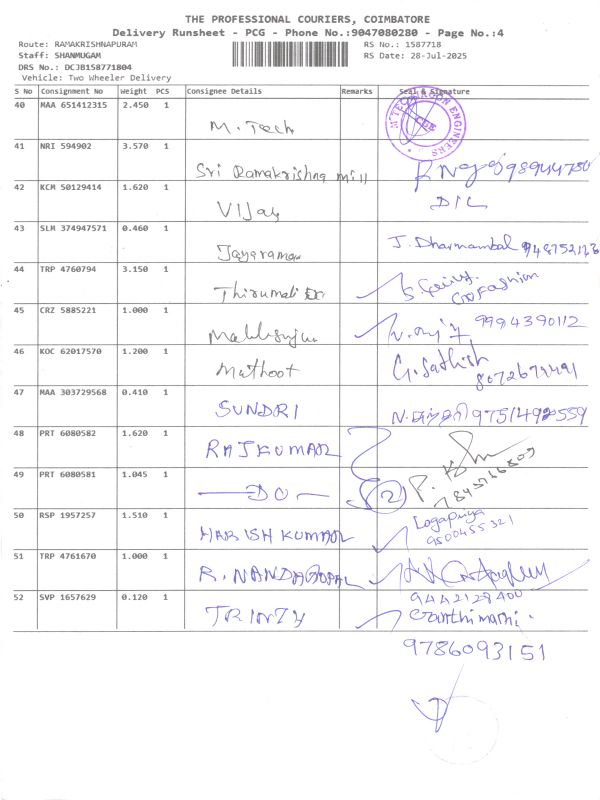 THE PROFESSIONAL COURIERS, COIMBATORE
Delivery Runsheet - PCG - Phone No.:9047080280 - Page No.:4
Route: RAMAKRISHNAPURAM
RS No.: 1587718
Staff: SHANMUGAM
RS Date: 28-Jul-2025
DRS No.: DCJB158771804
Vehicle: Two Wheeler Delivery
S No Consignment No Weight PCS Consignee Details Remarks Seal & Signature
40 MAA 651412315 2.450 1
M. Tech
41 NRI 594902 3.570 1
Sri Ramakrishna Mill
42 KCM 50129414 1.620 1
Vijay
43 SLM 374947571 0.460 1
Jayaraman J. Dharmambal
44 TRP 4760794 3.150 1
Thirumali
45 CRZ 5885221 1.000 1
9994390112
46 KOC 62017570 1.200 1
Muthoot G. Sathish
47 MAA 303729568 0.410 1
SUNDRI
48 PRT 6080582 1.620 1
RAJKUMAR
49 PRT 6080581 1.045 1
DO 2
50 RSP 1957257 1.510 1
HARISH KUMAR Logapriya
9500455321
51 TRP 4761670 1.000 1
R. NANDAGOPAL
52 SVP 1657629 0.120 1
9442128400
TRINTY Ganthimathi.
9786093151